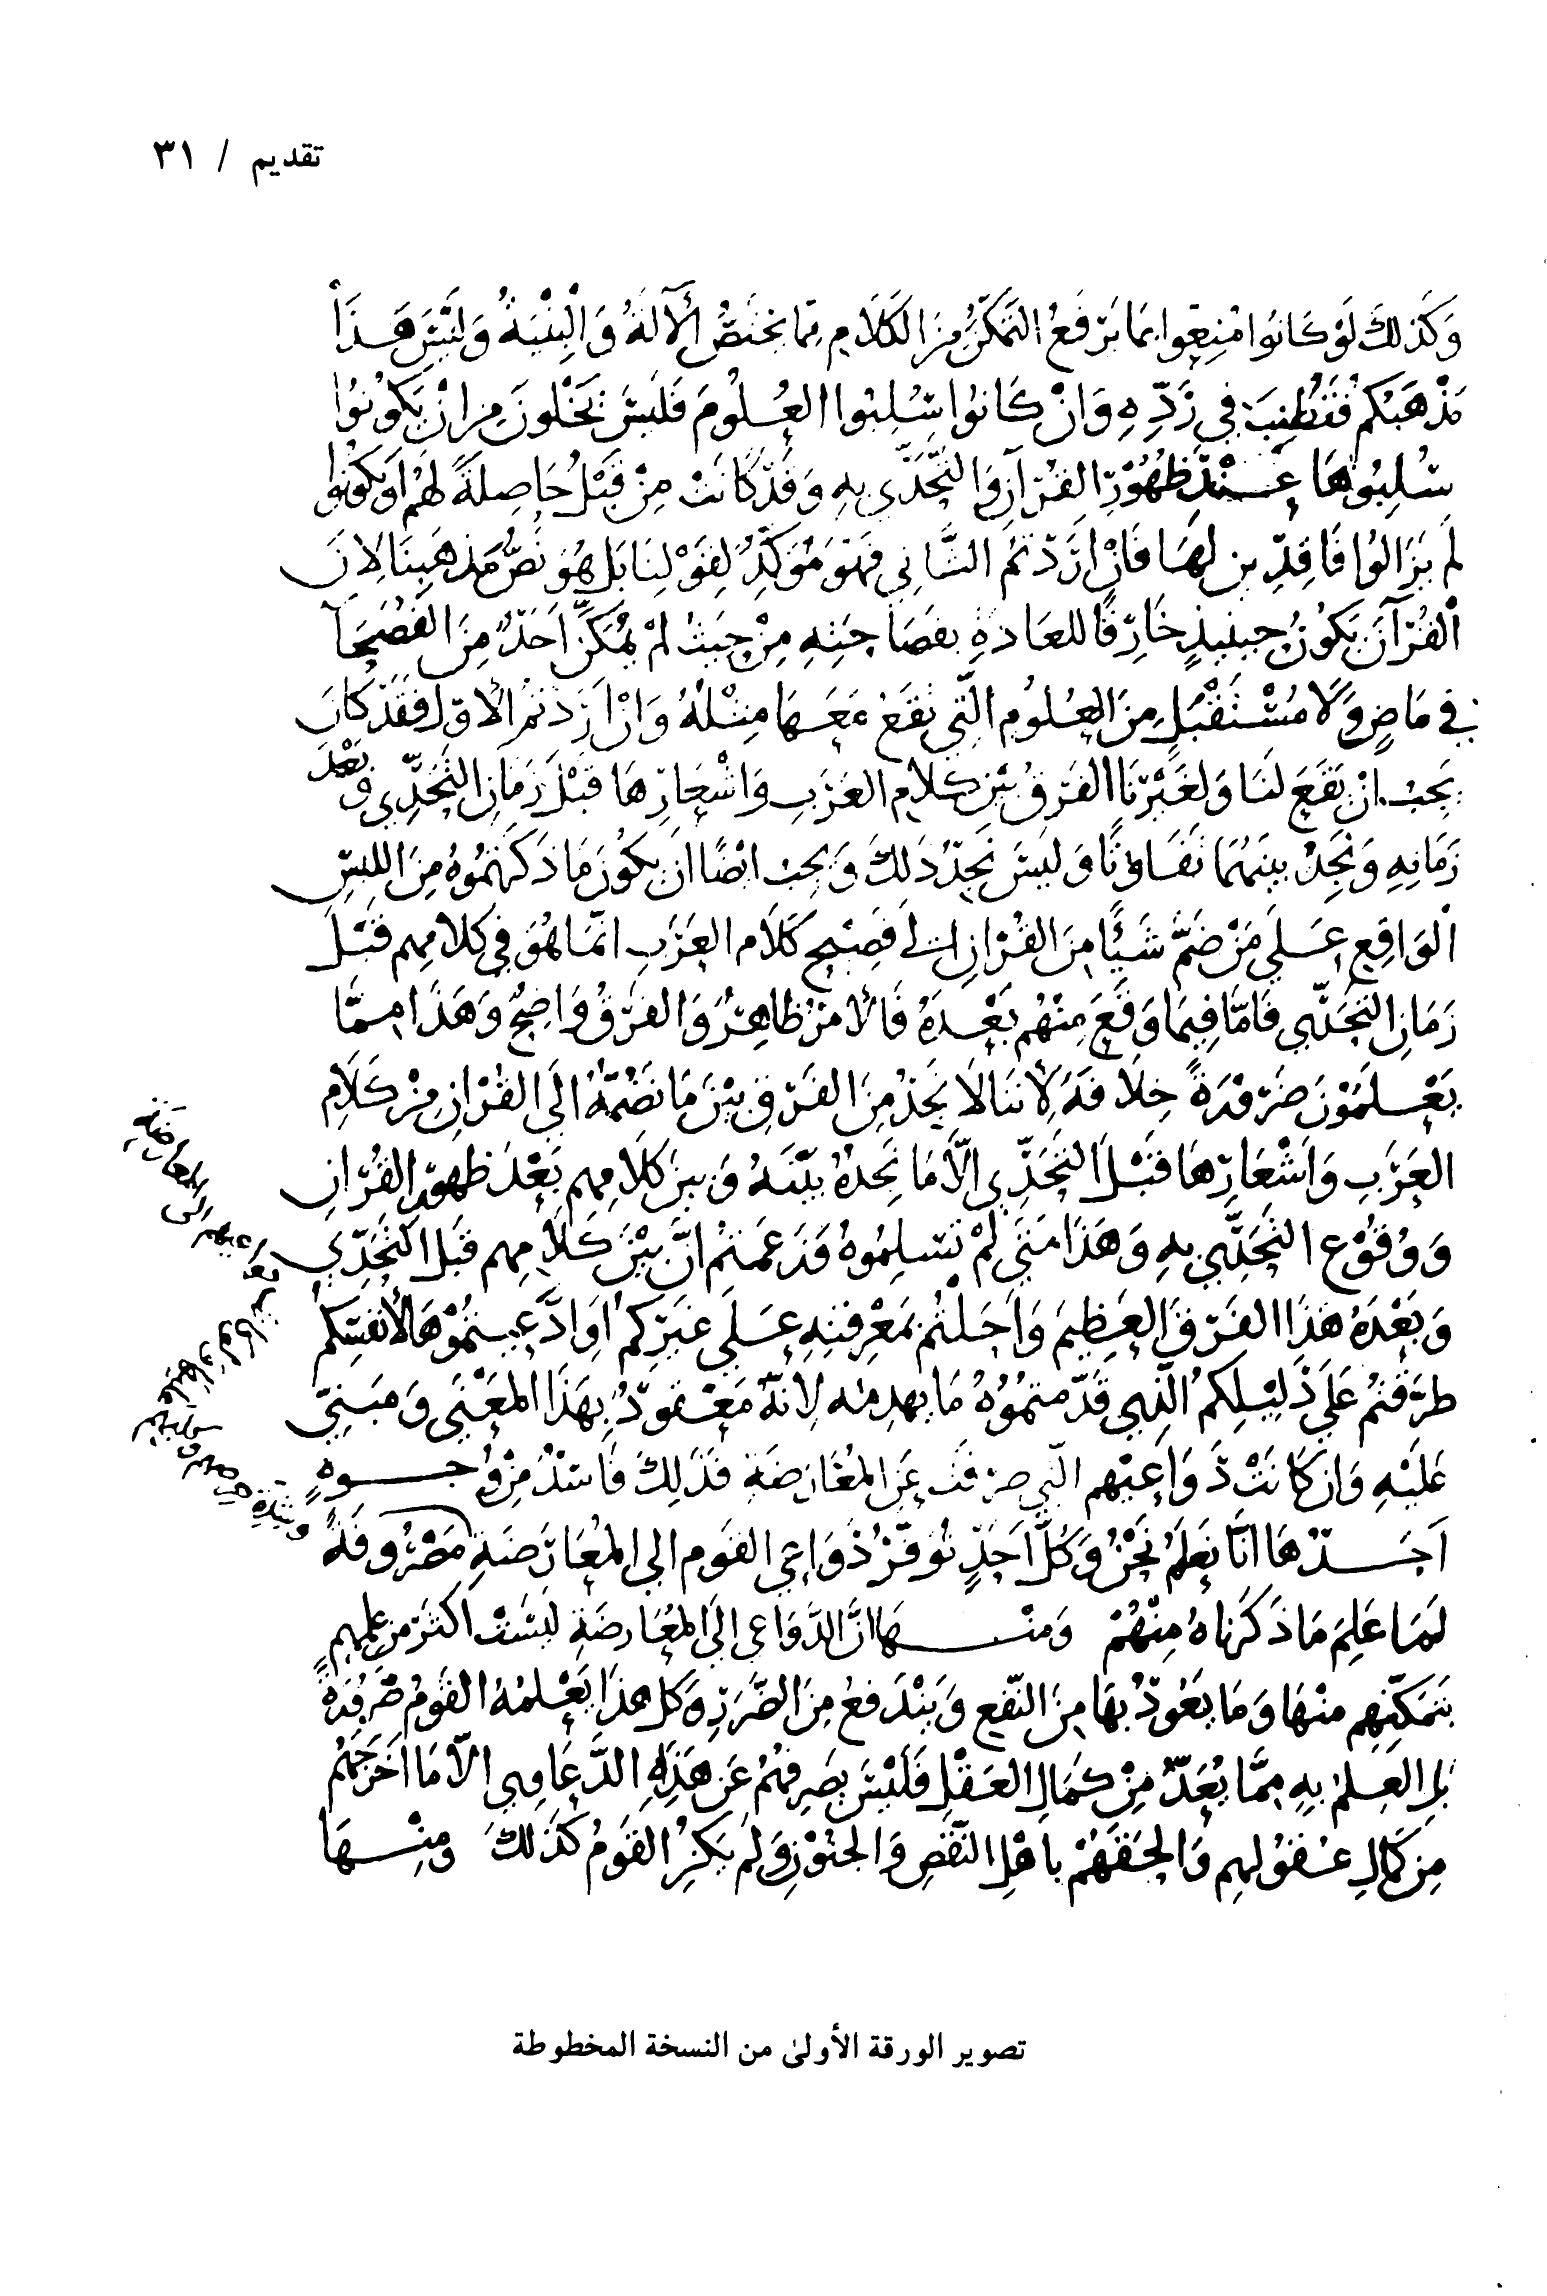 تقديم / ٣١
وَكَذلكَ لَوْ كَانوا مُنِعُوا بمَا يَرفَعُ التمَكّنُ مِنَ الكَلَامِ مِمّا يختَصُّ الآلَةَ وَالْبِنْيَةُ وَليْسَ هَذَا
مَذهَبَكم فنُطنِبَ في رَدِّهِ وَانْ كَانوُا سُلِبُوا العُلُومَ فَليسَ يَخْلونَ مِن انْ يَكونُوا
سُلِبُوهَا عِنْدَ ظُهُوْرِ القُرآنِ وَالتَّحَدِّي بهِ وَقَدْ كانَتْ مِنْ قَبْلُ حَاصِلةً لهُمْ اويَكونُوا
لم يَزَالوُا فَاقِدِين لهَا فَانْ ارَدْتمُ الثّانِي فَهوَ مُؤكّدٌ لِقَوْلِنَا بَل هُوَ نَصُّ مَذهَبِنَا لِانّ
الْقُرْآنَ يَكونُ حينَئِذٍ خَارِقًا للعَادَةِ بفَصَاحَتِهِ مِنْ حَيثُ لمْ يُمَكَّنْ اَحَدٌ مِنَ الفُصَحَآ
في مَاضٍ وَلَا مُسْتَقْبَلٍ مِنَ العُلُومِ الّتي يقَعُ مَعَهَا مِثْلُهُ وَانْ ارَدْتمُ الاوّل فَقَدْ كانَ
يَجِبُ انْ يَقَعَ لنَا وَلغَيْرنَا الفَرقُ بيْنَ كلامِ العَرَبِ وَاشْعَارِهَا قَبْلَ زَمَانِ التّحَدِّي وَبَعْدَ
زَمَانِهِ وَنَجِدُ بينَهُمَا تَفَاوُتًا وَليسَ نَجدُ ذلكَ وَيجبُ ايْضًا انْ يكونَ مَا ذكَرْتمُوهُ مِنَ اللبسِ
الْوَاقِعِ عَلى مَنْ ضَمَّ شَيْئًا مِنَ القُرْانِ الى فَصِيْحِ كَلَام العَرَبِ انّمَا هُوَ في كَلامِهم قَبْلَ
زَمَانِ التحَدّي فَامَّا فِيمَا وَقَعَ مِنْهُم بَعْدَهُ فَالامرُ ظاهِرٌ وَالفَرقُ وَاضِحٌ وَهَذا مِمَّا
يَعْلَمُوْنَ ضَرُوْرَةً خِلَافَهُ لِأنّنا لَا نَجدُ مِنَ الفَرقِ بيْنَ مَا نضُمّهُ الَى القُرْانِ مِنْ كَلَامِ
العَرَبِ وَاشْعَارِهَا قَبْلَ التحَدِّي الّا مَا نَجدُهُ بيْنَهُ وَبيْنَ كَلَامِهِم بَعْدَ ظهورِ القُرْانِ
وَوُقُوْعِ التحَدِّي بهِ وَهَذا مَتَى لمْ تُسلِمُوهُ وَزَعَمتمْ انَّ بَيْنَ كَلَامِهم قَبْلَ التحَدِّي
وَبَعْدَهُ هَذا الفَرقَ العَظِيمَ وَاَحَلْتُم بمَعْرِفَتِهِ عَلى غَيرِكمُ اوَادَّعَيتمُوْهَا لأنفُسِكمْ
طرَّقتُم عَلى دَلِيْلِكمُ الّذِي قَدّمتمُوُهُ مَا يهدِمُه لِانّهُ مَعْقودٌ بِهَذَا المَعْنَى وَمَبنِيّ
عَلَيْهِ وَان كَانتْ دَوَاعِيْهم الّتي صرِفَت عَنِ المُعَارَضَةِ فَذلِكَ فَاسِدٌ مِنْ وُجُوهٍ
اَحَدُهَا انّا نَعلَمُ نَحْنُ وَكلُّ اَحَدٍ توَفّرَ دَوَاعِي القَوم الى المُعَارَضَةِ مَصْرُوفَةً
لمَا عَلِمَ مَا ذكَرناهُ مِنْهُمْ وَمنْهَا انَّ الدَّوَاعي الَى المُعَارضَةِ ليْسَتْ اكثرَ مِن عِلمِهم
بتَمَكّنِهِم منْهَا وَمَا يَعُودُ بهَا مِنَ النّفعِ وَيَنْدَفعُ مِنَ الضّرَرِ وَكل هذا يَعْلمُهُ القَومُ ضَرُورَةً
بل العِلمُ بِهِ مِمَّا يُعَدُّ مِنْ كَمَالِ العَقْلِ فَلَيْسَ يَصرِفهُمْ عَن هَذِهِ الدَّعَاوِي الّا مَا اخرَجَهُم
مِن كَمَالِ عُقُولهِم وَالحَقَهُمْ باهْلِ النّقْصِ وَالجنُوْنِ وَلمْ يَكنِ القَومُ كَذلكَ وَمِنْهَا
تصوير الورقة الأولىٰ من النسخة المخطوطة